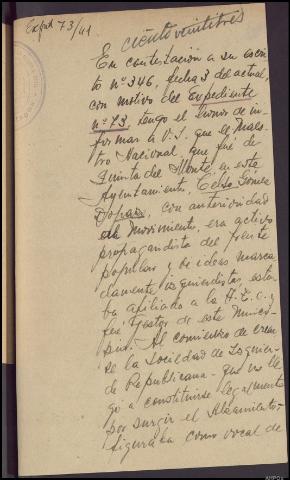 Expte 73/41
ciento veintitres
En contestación a su escri-
to nº 346, fecha 3 del actual,
con motivo del Expediente
nº 73, tengo el honor de in-
formar a V.S. que el Maes-
tro Nacional, que fué de
Quinta del Monte, en este
Ayuntamiento, Celso Gómez
con anterioridad
al Movimiento, era activo
propagandista del frente
popular y de ideas marca-
damente izquierdistas, esta-
ba afiliado a la y
fué Gestor de este Munici-
pio. Al comienzo de crear-
se la Sociedad de Izquier-
da Republicana - que no lle-
gó a constituirse legalmente
por surgir el Alzamiento -
figuraba como vocal de